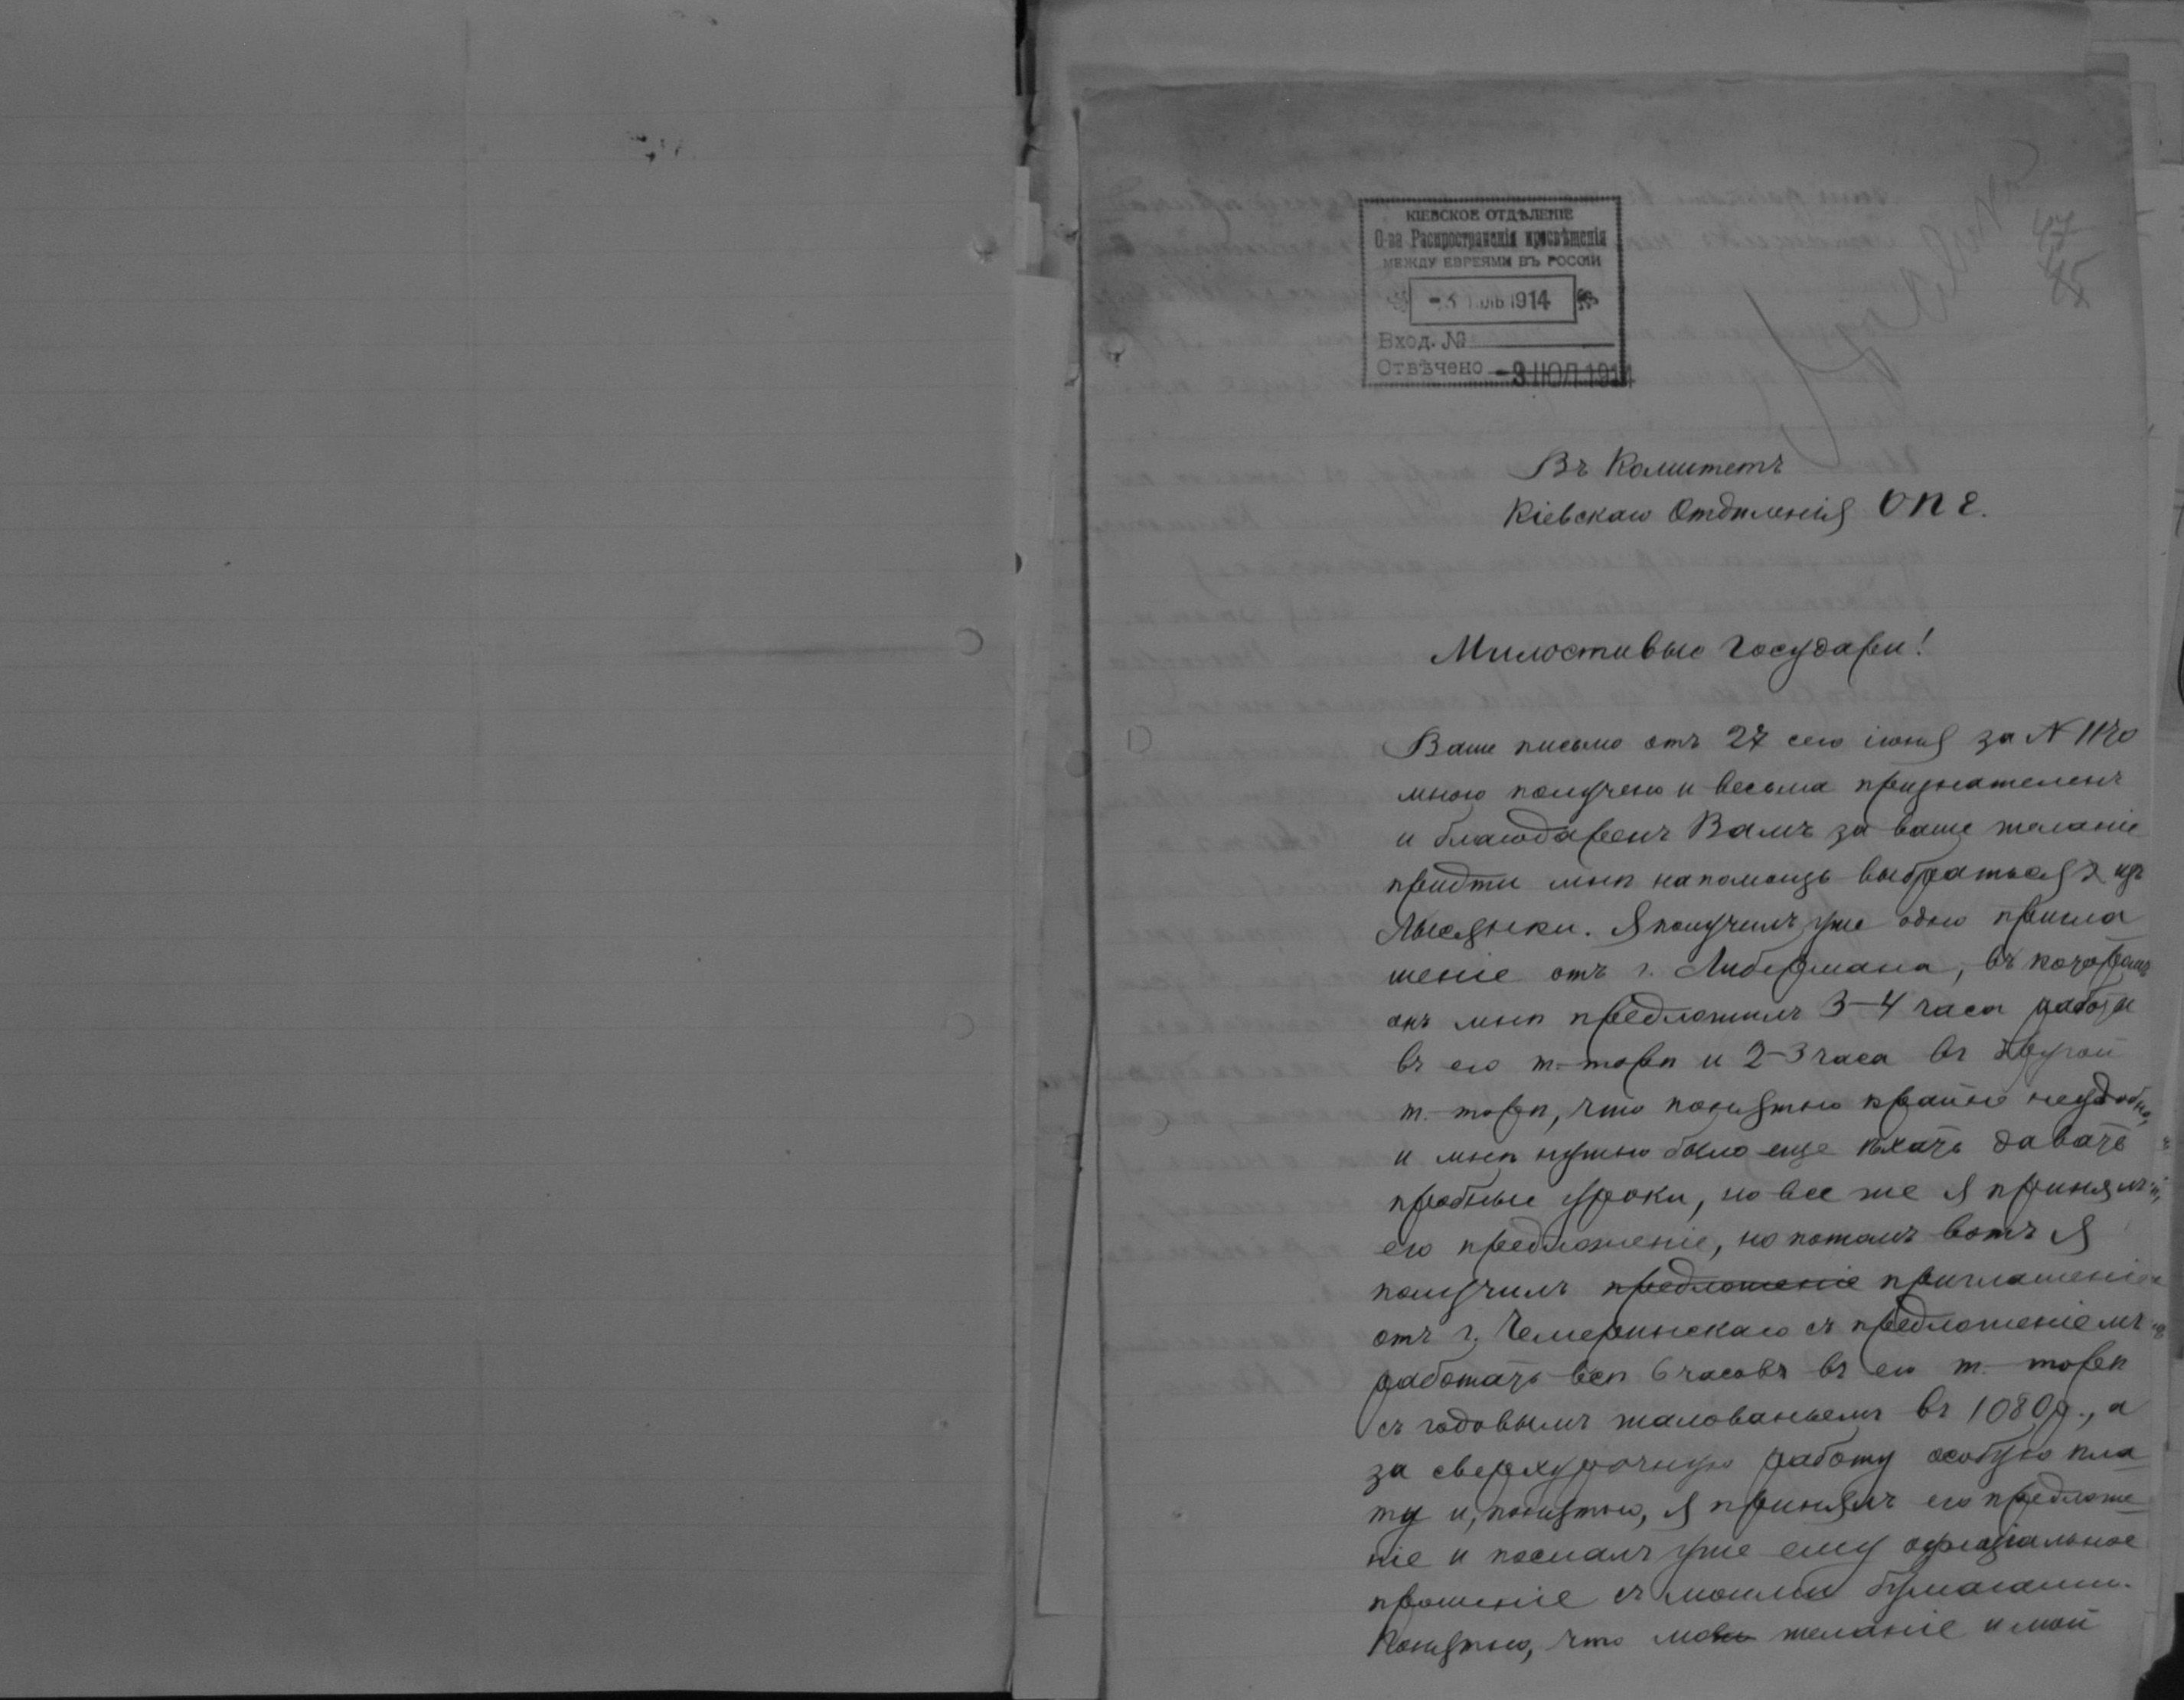 КІЕВСКОЕ ОТДѢЛЕНІЕ
О-ва Распространенія просвѣщенія
МЕЖДУ ЕВРЕЯМИ ВЪ РОССІИ
-3 ІЮЛЬ 1914
Вход. №
Отвѣчено -3 ІЮЛ 1914
Въ Комитетъ
Кіевскаго Отдѣленія ОПЕ.
Милостивые Государи!
Ваше письмо отъ 27 сего іюня за N
мною получено и весьма признателенъ
и благодаренъ Вамъ за ваше желаніе
придти мнѣ на помощь выбраться изъ
Лысянки. Я получилъ уже одно пригла
шеніе отъ г. Либермана, въ которомъ
онъ мнѣ предложилъ 3-4 часа работы
въ его т.-торѣ и 2-3 часа въ другой
т.-торѣ, что понятно крайне неудобно,
и мнѣ нужно было еще ѣхать давать
пробные уроки, но все же я принялъ
его предложеніе, но потомъ вотъ я
получилъ предложеніе приглашеніе
отъ г. Чемеринскаго съ предложеніемъ
работать всѣ 6 часовъ въ его т.-торѣ
съ годовымъ жалованьемъ въ 1080 р., а
за сверхурочную работу особую пла
ту и, понятно, я принялъ его предложе
ніе и послалъ уже ему офиціальное
прошеніе съ моими бумагами.
Понятно, что желаніе и мой